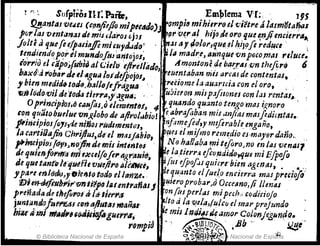 Suspiros III. Parte.
Quantas vezes (confiesso mi pecado)
por las ventanas de mis claros ojos
solté à que se espaciasse mi cuydado
tendiendo por el mundo sus antojos,
corriò el cãpo, subiò al Cielo estrellado,
baxó à robar de el agua los despojos,
y bien medido todo, hallo ser fragua
un lodo vil de toda tierra, y agua.
O principios, ò causas, ò elementos,
con quãto burlar un globo de açrolabios
principios soys, de niños rudimentos,
la cartilla sin Christus, de el mas sabio,
principios soys, no fin de mis intentos
de quien forma mi excelso ser agravio,
de que tanto le queste un hierro alcance,
y pare en lodo, y viento todo el lance.
preñada de thesoros à la tierra
juntando fuerzas con astutas mañas
hize à mi madre codiciosa guerra,
rompió
Emblema VI. 195
rompiò mi hierro el vietre à lastimosas
por ver al hijo de oro que en si encierra,
mas ay dolor, que el hijo se reduce
la madre, aunque un poco mas reluce.
Amontonè de barras un thesoro
rebentaban mis arcas de contentas,
creciome la avaricia con el oro,
subieron mis passiones con las rentas,
y quando quanto tengo mas ignoro
abrasaban mis ansias mas sedientas,
enferma sed, y miserable engaño,
pues el mismo remedio es mayor daño.
No hallaba mi tesoro, no en las venas
la tierra escondido, que mi Esposo
sus esposas quiere bien agenas,
de quanto el suelo encierra mas precioso
quiero probar, ò Oceano, si llenas
con sus perlas mi pecho codicioso
dio à la vela, sulco el mar profundo
de mis Indias de amor Colon segundo.
Bb
Que
© Biblioteca Nacional de España
© Biblioteca Nacional de España